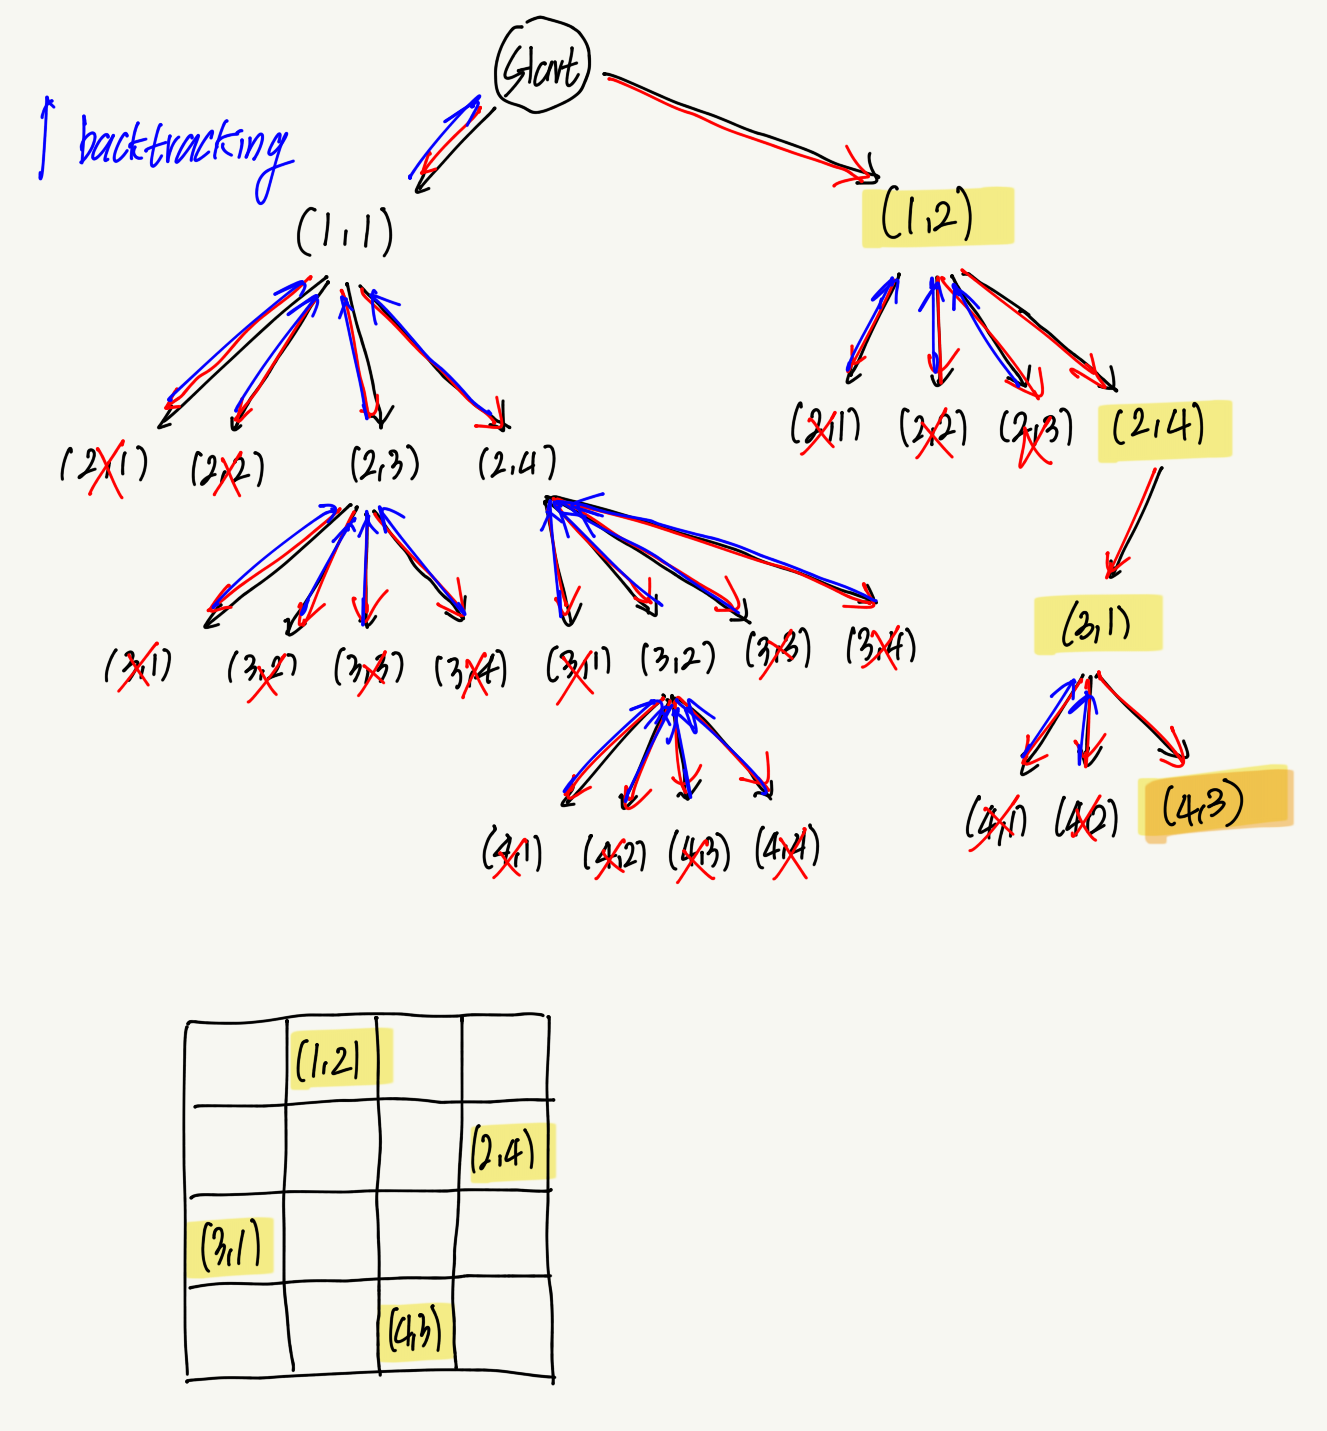 Start
backtracking
(1,1)
(1,2)
(2,1) (2,2) (2,3) (2,4)
(2,1) (2,2) (2,3) (2,4)
(3,1) (3,2) (3,3) (3,4) (3,1) (3,2) (3,3) (3,4)
(3,1)
(4,1) (4,2) (4,3) (4,4)
(4,1) (4,2) (4,3)
(1,2)
(2,4)
(3,1)
(4,3)